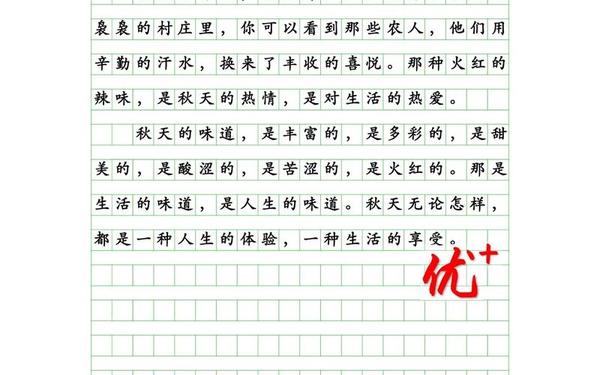 袅袅的村庄里，你可以看到那些农人，他们用
辛勤的汗水，换来了丰收的喜悦。那种火红的
辣味，是秋天的热情，是对生活的热爱。
秋天的味道，是丰富的，是多彩的，是甜
美的，是酸涩的，是苦涩的，是火红的。那是
生活的味道，是人生的味道。秋天无论怎样，
都是一种人生的体验，一种生活的享受。
优+